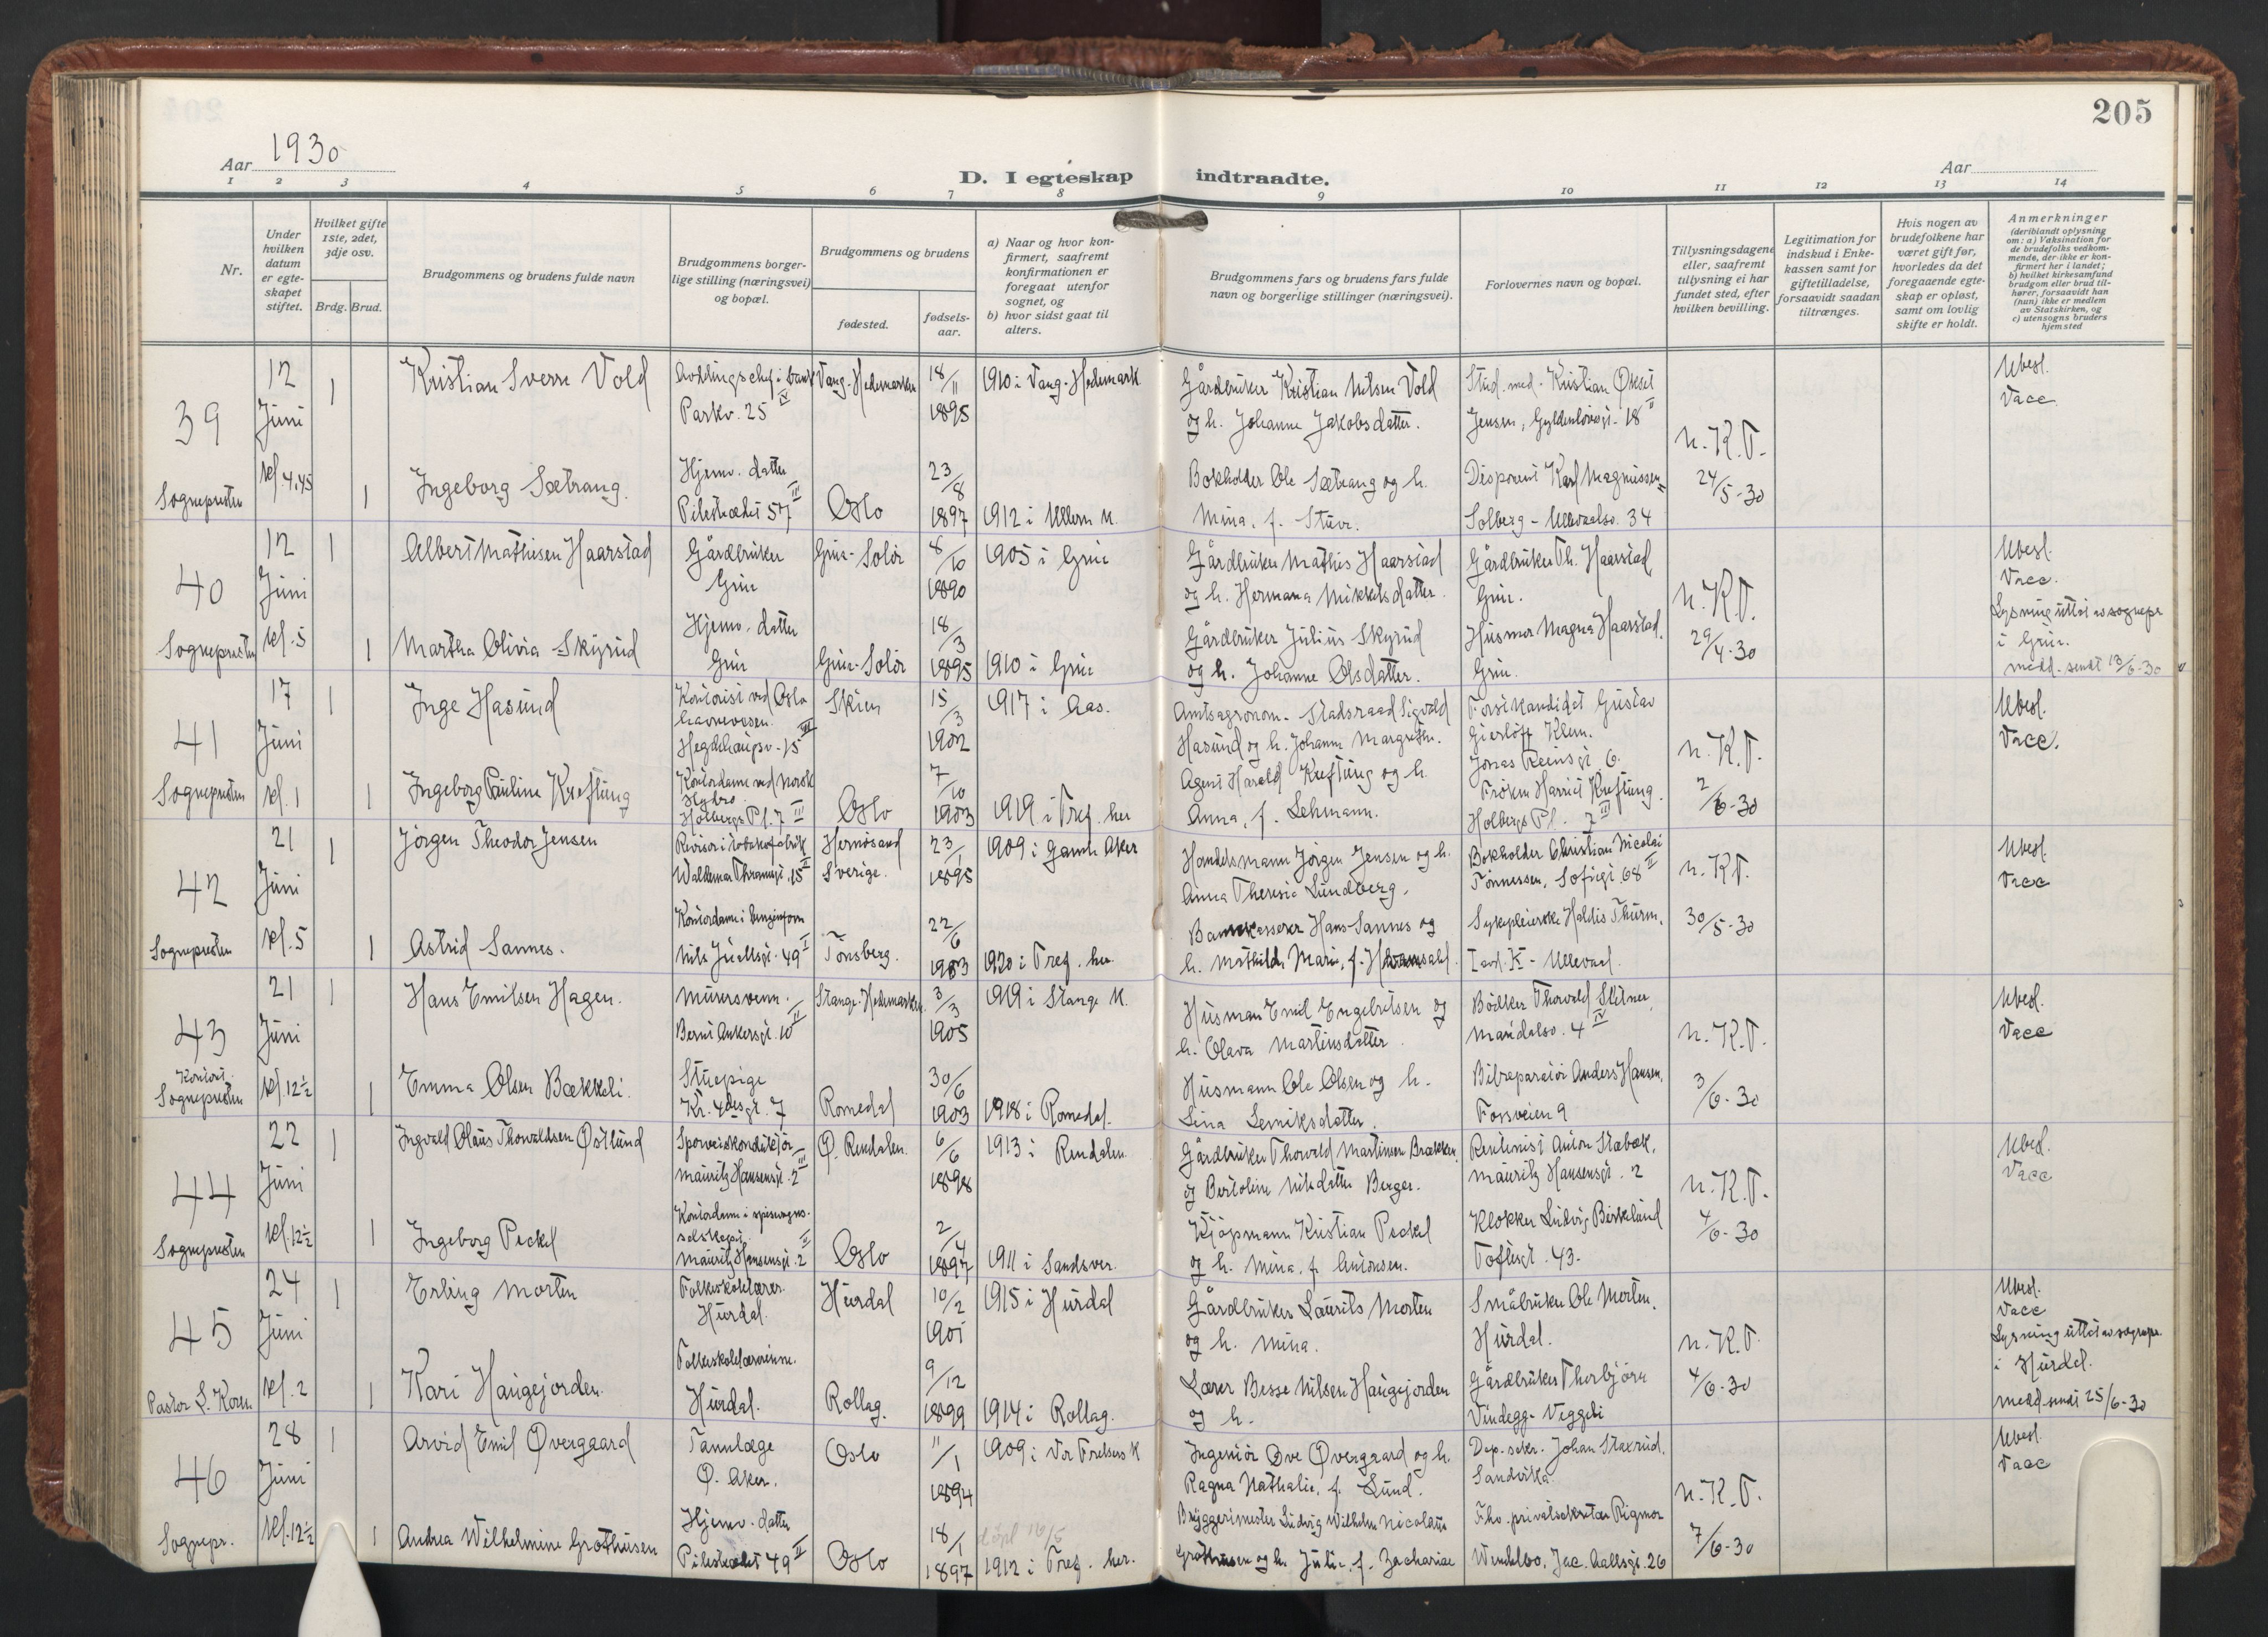 205
Aar 1930
D. I egteskap indtraadte.
Aar
1 2 3 4 5 6 7 8 9 10 11 12 13 14
Nr.
Under hvilken datum er egteskapet stiftet.
Hvilket gifte 1ste, 2det, 3dje osv.
Brdg. Brud.
Brudgommens og brudens fulde navn
Brudgommens borgerlige stilling (næringsvei) og bopæl.
Brudgommens og brudens
fødested.
fødselsaar.
a) Naar og hvor konfirmert, saafremt konfirmationen er foregaat utenfor sognet, og
b) hvor sidst gaat til alters.
Brudgommens fars og brudens fars fulde navn og borgerlige stillinger (næringsvei).
Forlovernes navn og bopæl.
Tillysningsdagene eller, saafremt tillysning ei har fundet sted, efter hvilken bevilling.
Legitimation for indskud i Enkekassen samt for giftetilladelse, forsaavidt saadan tiltrænges.
Hvis nogen av brudefolkene har været gift før, hvorledes da det foregaaende egteskap er opløst, samt om lovlig skifte er holdt.
Anmerkninger (deriblandt oplysning om: a) Vaksination for de brudefolks vedkommende, der ikke er konfirmert her i landet; b) hvilket kirkesamfund brudgom eller brud tilhører, forsaavidt han (hun) ikke er medlem av Statskirken, og c) utensogns bruders hjemsted
39 Sognepresten 12 Juni kl. 4.45
1 Kristian Sverre Vold
Parkv. 25 IV
Vang-Hedemarken 18/11 1895
1910 i Vang-Hedemark
Gårdbruker Kristian Nilsen Vold
og h. Johanne Jakobsdatter.
Stud. med. Kristian Økset
Jensen, Gyldenløvesgt. 18 II
1 Ingeborg Sætrang.
Hjemv. datter
Pilestrædet 57 III
Oslo 23/8 1897
1912 i Ullern K.
Bokholder Ole Sætrang og h.
Mina, f. Stuvr.
Disponent Karl Magnussen
Solberg - Ullevaalsv. 34
n. K. T.
24/5-30
Ubesl.
Vacc.
40 Sognepresten 12 Juni kl. 5
1 Albert Mathisen Haarstad
Gårdbruker
Grue
Grue-Solør 8/10 1890
1905 i Grue
Gårdbruker Mathis Haarstad
og h. Hermana Mikkelsdatter.
Gårdbruker Th. Haarstad,
Grue.
1 Martha Olivia Skyrud
Hjemv. datter
Grue
Grue-Solør 18/3 1895
1910 i Grue
Gårdbruker Julius Skyrud
og h. Johanne Olsdatter.
Husmor Magna Haarstad.
Grue.
n. K. T.
29/4-30
Ubesl.
Vacc.
Lysning uttat av sognepr.
i Grue.
medd. sendt 13/6-30
41 Sognepresten 17 Juni kl. 1
1 Inge Hasund
Kontorist ved Oslo
havnevesen.
Hegdehaugsv. 15 III
Skien 15/3 1902
1917 i Aas.
Amtsagronom - Stadsraad Sigvald
Hasund og h. Johanne Margrethe.
Forstkandidat Gustav
Gierløff Klem.
Jonas Reinsgt. 6.
1 Ingeborg Pauline Kreftung
Kontordame ved Norsk
Hydro
Holbergs Pl. 7 III
Oslo 7/10 1903
1919 i Tref. her
Agent Harald Kreftung og h.
Anna, f. Lehmann.
Frøken Harriet Kreftung.
Holbergs Pl. 7 III
n. K. T.
2/6-30
Ubesl.
Vacc.
42 Sognepresten 21 Juni kl. 5
1 Jørgen Theodor Jensen
Revisor i tobaksfabrik
Waldemar Thranesgt. 15 II
Hernøsand
Sverige. 23/1 1895
1909 i Gamle Aker
Handelsmann Jørgen Jensen og h.
Anna Theresie Lundberg.
Bokholder Christian Nicolai
Tønnessen, Sofiegt. 68 II
1 Astrid Sannes.
Nils Juelsgt. 49 I
Tønsberg. 22/6 1903
1920 i Tref. her.
Bankkasserer Hans Sannes og
h. Mathilde Marie, f.
Sykepleierske Haldis Thurm.
I avd. K - Ullevaal.
n. K. T.
30/5-30
Ubesl.
Vacc
43 Kontoret. Sognepresten 21 Juni kl. 12½
1 Hans Emilsen Hagen.
Murersvenn.
Bernt Ankersgt. 10 II
Stange-Hedemarken 3/3 1905
1919 i Stange K.
Husman Emil Engebretsen og
h. Olava Martinsdatter.
Bødker Thorvald Slitner,
Maridalsv. 4 IV
1 Emma Olsen Bækkeli.
Stuepige
Kr. 4des gt. 7
Romedal 30/6 1903
1918 i Romedal.
Husmann Ole Olsen og h.
Lina Lerniksdatter.
Bilreparatør Anders Hansen,
Fossveien 9
n. K. T.
3/6-30
Ubesl.
Vacc
44 Sognepresten 22 Juni kl. 12½
1 Ingvald Olaus Thorvaldsen Østlund
Sporveiskonduktør
Mauritz Hansensgt. 2 III
Ø. Rendalen. 6/6 1898
1913 i Rendalen
Gårdbruker Thorvald Martinsen Brækken,
og Bertoline Nilsdatter Berger.
Rentenist Anton Stabæk,
Mauritz Hansensgt. 2
1 Ingeborg Peckel
Kontordame i spisevogns-
selskapet.
Mauritz Hansensgt. 2 II
Oslo 2/4 1897
1911 i Sandsver.
Kjøpmann Kristian Peckel
og h. Mina, f. Antonsen.
Klokker Ludvig Birkeland
Toftesgt. 43.
n. K. T.
4/6-30
Ubesl.
Vacc
45 Pastor L. Koren 24 Juni kl. 2
1 Erling Morten
Folkeskolelærer.
Hurdal.
Hurdal 10/2 1901
1915 i Hurdal
Gårdbruker Laurits Morten
og h. Mina.
Småbruker Ole Morten,
Hurdal.
1 Kari Haugejorden.
Folkeskolelærerinne.
Hurdal.
Rollag. 9/12 1899
1914 i Rollag.
Lærer Besse Nilsen Haugejorden
og h.
Gårdbruker Thorbjørn
Vindegg - Veggli
n. K. T.
4/6-30
Ubesl.
Vacc
Lysning uttat av sognepr.
i Hurdal.
medd. sendt 25/6-30
46 Sognepr. 28 Juni kl. 12½
1 Arvid Emil Øvergaard
Tannlæge
Ø. Aker.
Oslo 11/1 1894
1909 i Vor Frelsers K
Ingeniør Ove Øvergaard og h.
Ragna Nathalie, f. Lund.
Dep. sekr. Johan Staxrud.
Sandvika.
1 Andrea Wilhelmine Grothusen
Hjemv. datter
Pilestrædet 49 II
Oslo 18/1 1897
døpt 16/5
1912 i Tref. her.
Bryggerimester Ludvig Wilhelm Nicolaus
Grothusen og h. Julie, f. Zachariae
Fhv. privatsekretær Rigmor
Wendelbo, Jac. Aallsgt. 26
n. K. T.
7/6-30
Ubesl.
Vacc